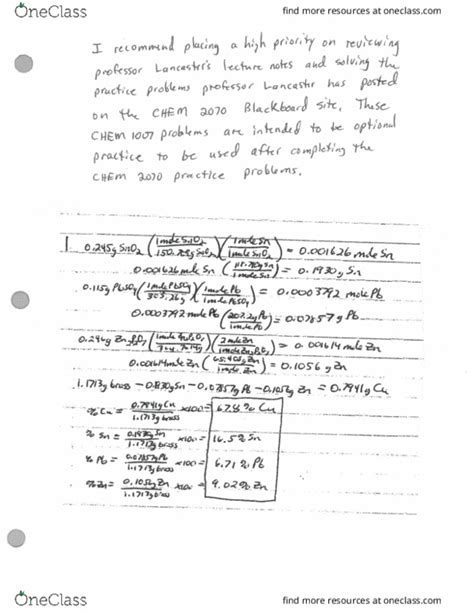 OneClass
find more resources at oneclass.com
I recommend placing a high priority on reviewing
professor Lancaster's lecture notes and solving the
practice problems professor Lancaster has posted
on the CHEM 2070 Blackboard site. These
CHEM 1007 problems are intended to be optional
practice to be used after completing the
CHEM 2070 practice problems.
1. 0.245g SnO2 (1 mole SnO2 / 150.70g SnO2)(1 mole Sn / 1 mole SnO2) = 0.001626 mole Sn
0.001626 mole Sn (118.710g Sn / 1 mole Sn) = 0.1930g Sn
0.115g PbSO4 (1 mole PbSO4 / 303.26g)(1 mole Pb / 1 mole PbSO4) = 0.0003792 mole Pb
0.0003792 mole Pb (207.2g Pb / 1 mole Pb) = 0.07857g Pb
0.246g Zn2P2O7 (1 mole Zn2P2O7 /)(2 mole Zn / 1 mole Zn2P2O7) = 0.001614 mole Zn
0.001614 mole Zn (65.409g Zn / 1 mole Zn) = 0.1056g Zn
1.1713g brass - 0.1930g Sn - 0.07857g Pb - 0.1056g Zn = 0.7941g Cu
% Cu = 0.7941g Cu / 1.1713g brass x100 = 67.8% Cu
% Sn = 0.1930g Sn / 1.1713g brass x100 = 16.5% Sn
% Pb = 0.07857g Pb / 1.1713g brass x100 = 6.71% Pb
% Zn = 0.1056g Zn / 1.1713g brass x100 = 9.02% Zn
OneClass
find more resources at oneclass.com